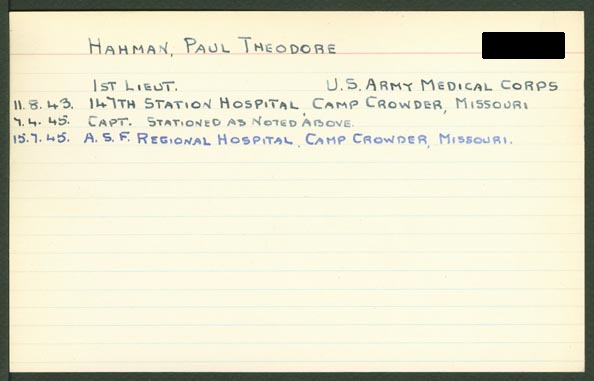 HAHMAN, PAUL THEODORE
1ST LIEUT. U.S. ARMY MEDICAL CORPS
11.8.43. 147TH STATION HOSPITAL, CAMP CROWDER, MISSOURI
7.4.45. CAPT. STATIONED AS NOTED ABOVE.
15.7.45. A.S.F. REGIONAL HOSPITAL, CAMP CROWDER, MISSOURI.